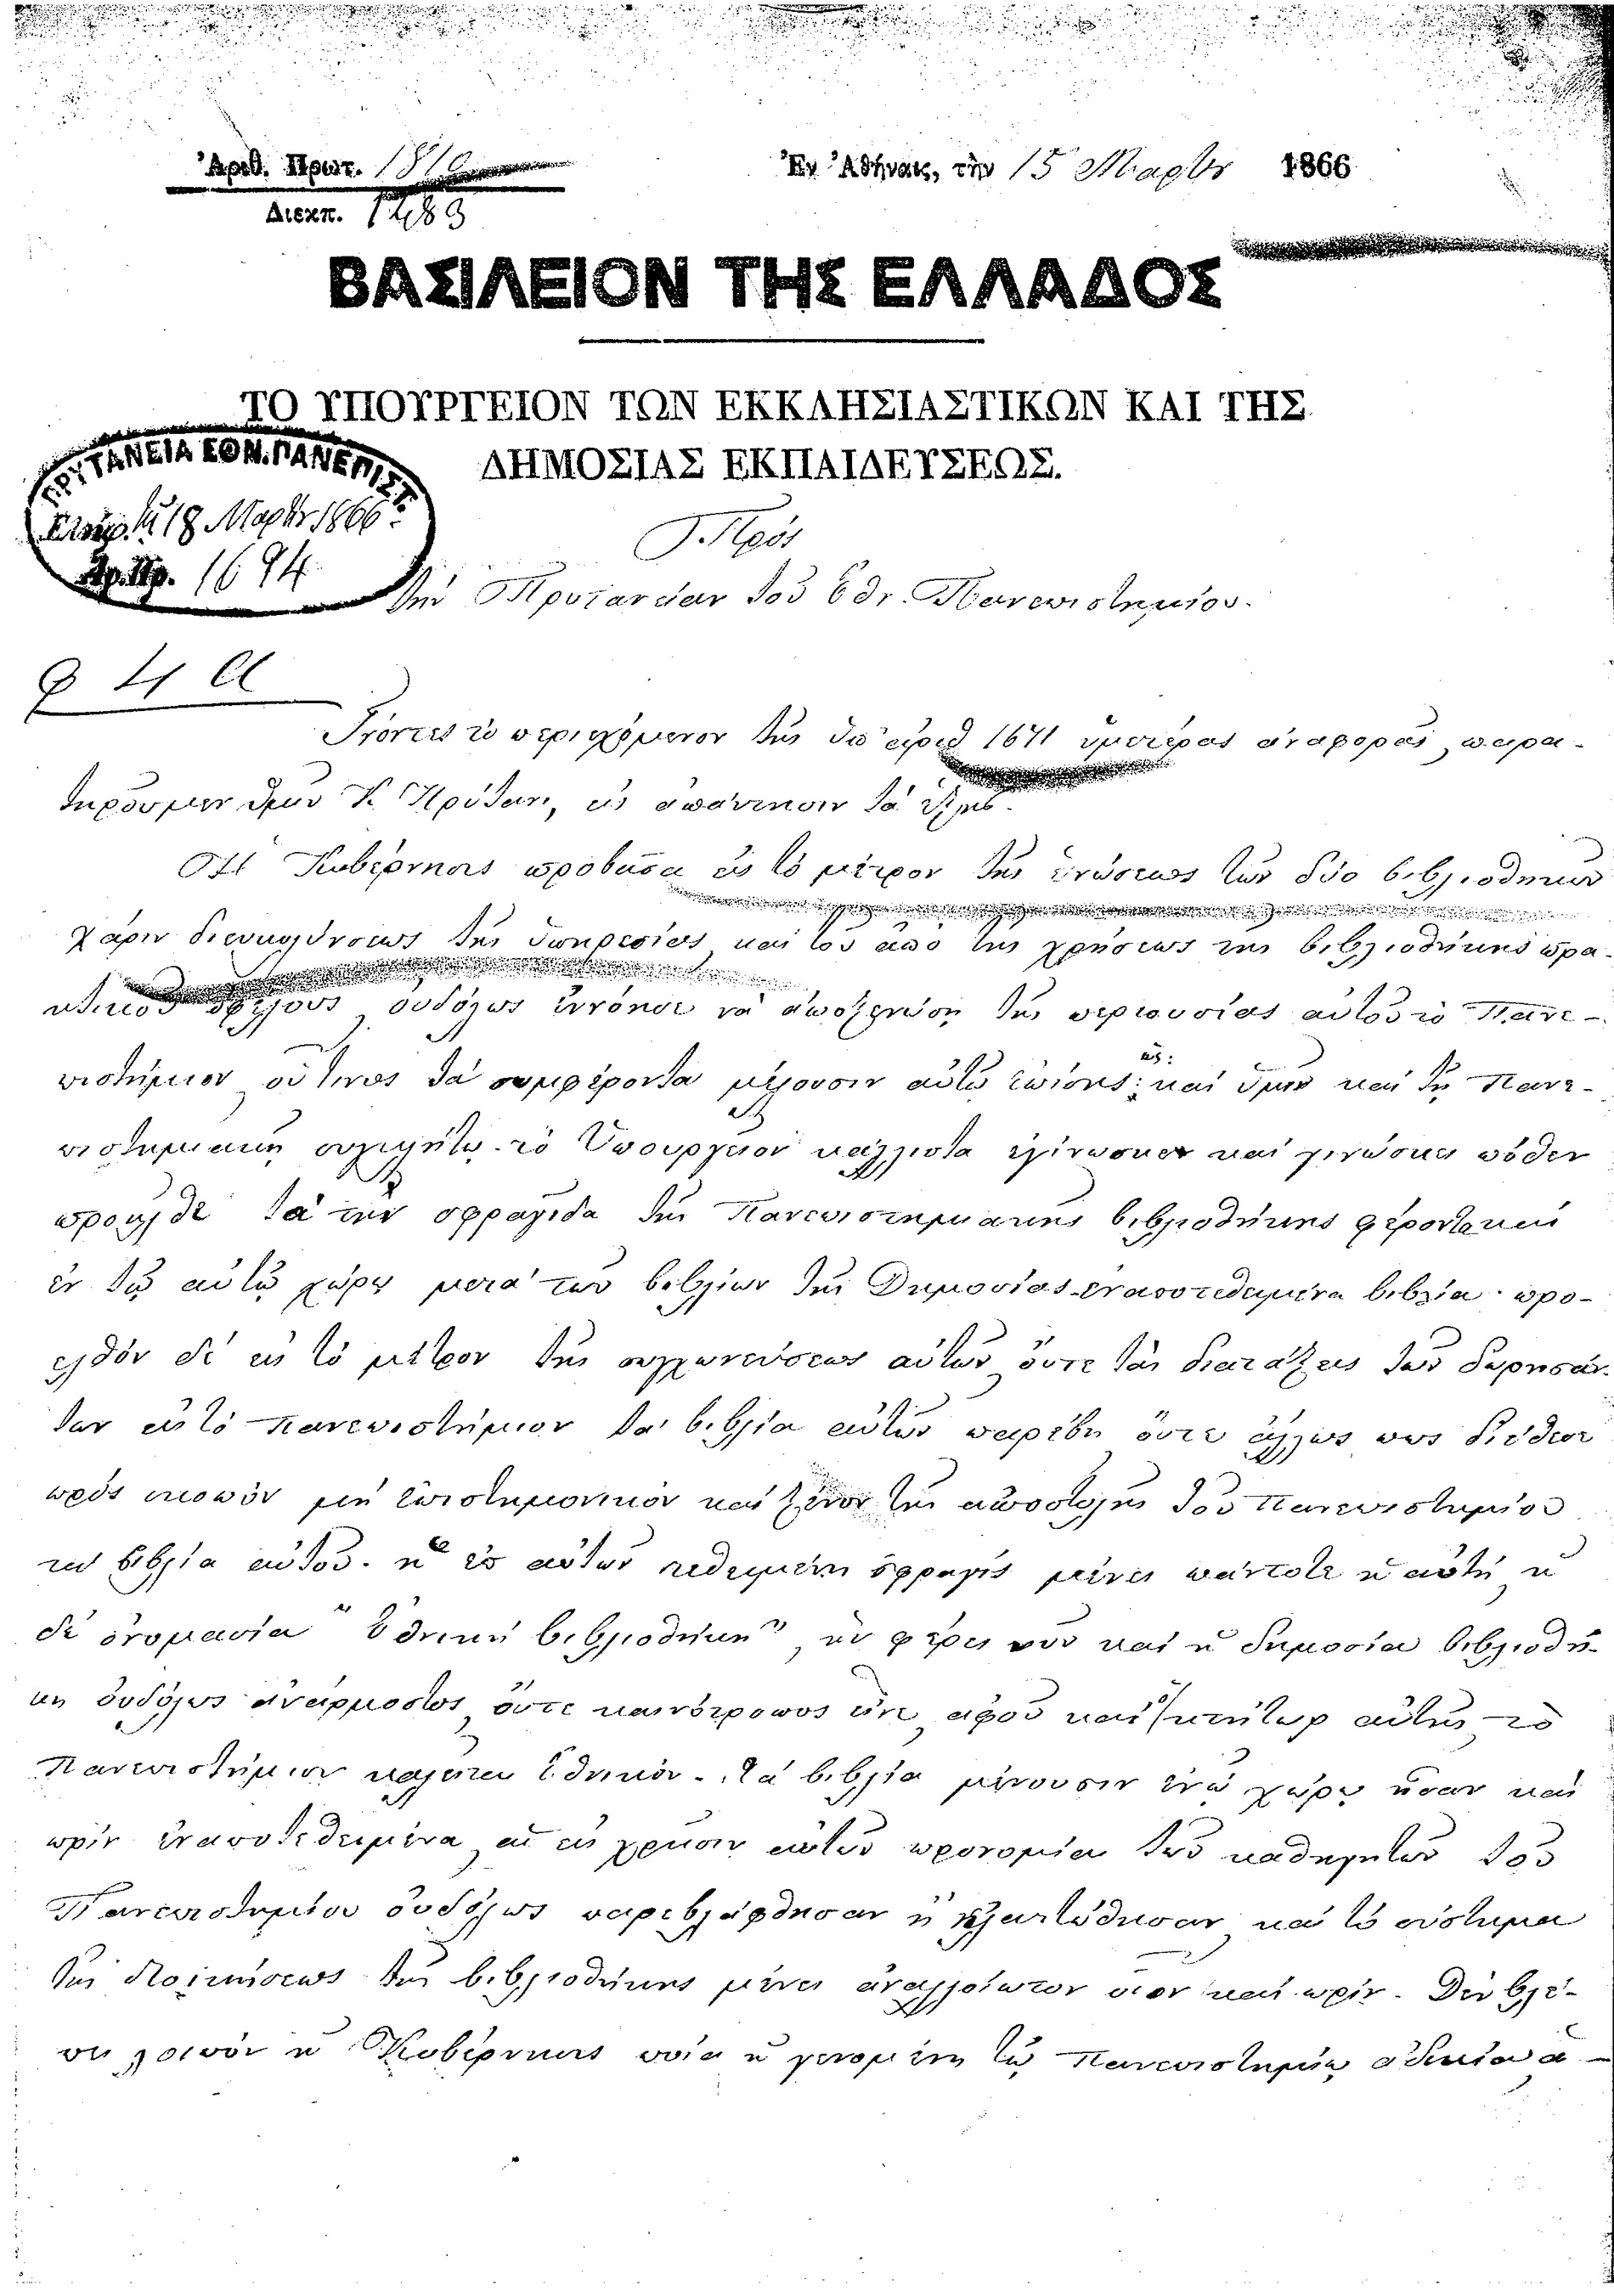 Ἀριθ. Πρωτ. 1810
Διεκπ. 1283
Ἐν Ἀθήναις, τὴν 15 Μαρτίου 1866
ΒΑΣΙΛΕΙΟΝ ΤΗΣ ΕΛΛΑΔΟΣ
ΤΟ ΥΠΟΥΡΓΕΙΟΝ ΤΩΝ ΕΚΚΛΗΣΙΑΣΤΙΚΩΝ ΚΑΙ ΤΗΣ
ΔΗΜΟΣΙΑΣ ΕΚΠΑΙΔΕΥΣΕΩΣ.
ΠΡΥΤΑΝΕΙΑ ΕΘΝ. ΠΑΝΕΠΙΣΤ.
18 Μαρτίου 1866
Ἀρ. Πρ. 1694
Πρὸς
τὴν Πρυτανείαν τοῦ Ἐθν. Πανεπιστημίου.
Γνόντες τὸ περιεχόμενον τῆς ὑπ' ἀριθ 1671 ὑμετέρας ἀναφορᾶς, παρα-
τηροῦμεν ὑμῖν Κ. Πρύτανι, εἰς ἀπάντησιν τὰ ἑξῆς.
Ἡ Κυβέρνησις προβᾶσα εἰς τὸ μέτρον τῆς ἑνώσεως τῶν δύο βιβλιοθηκῶν
χάριν διευκολύνσεως τῆς ὑπηρεσίας καὶ τοῦ ἀπὸ τῆς χρήσεως τῆς βιβλιοθήκης πρα-
κτικοῦ ὀφέλους, οὐδόλως ἐννόησε νὰ ἀποξενώσῃ τῆς περιουσίας αὐτοῦ τὸ Πανε-
πιστήμιον οὗτινος τὰ συμφέροντα μέλουσιν αὐτῷ ἐπίσης ὡς καὶ ὑμῖν καὶ τῇ Πανε-
πιστημιακῇ συγκλήτῳ. τὸ Ὑπουργεῖον κάλλιστα ἐγίνωσκε καὶ γινώσκει πόθεν
προῆλθε τὰ τὴν σφραγῖδα τῆς Πανεπιστημιακῆς βιβλιοθήκης φέροντα καὶ
ἐν τῷ αὐτῷ χώρῳ μετὰ τῶν βιβλίων τῆς Δημοσίας ἐναποτεθειμένα βιβλία. προ-
ελθὸν δὲ εἰς τὸ μέτρον τῆς συγχωνεύσεως αὐτῶν οὔτε τὰς διατάξεις τῶν δωρησάν-
των εἰς τὸ πανεπιστήμιον τὰ βιβλία αὐτῶν παρέβη οὔτε ἄλλως πως διέθεσε
πρὸς σκοπὸν μὴ ἐπιστημονικὸν καὶ ξένον τῆς ἀποστολῆς τοῦ πανεπιστημίου
τὰ βιβλία αὐτοῦ. ἡ ἐπ' αὐτῶν τεθειμένη σφραγὶς μένει πάντοτε ἡ αὐτὴ ἡ
δὲ ὀνομασία "Ἐθνικὴ βιβλιοθήκη", ἣν φέρει νῦν καὶ ἡ δημοσία βιβλιοθή-
κη οὐδόλως ἀνάρμοστος οὔτε καινότροπος εἶνε, ἀφοῦ καὶ ὁ κτήτωρ αὐτῆς τὸ
Πανεπιστήμιον καλεῖται Ἐθνικόν. Τὰ βιβλία μένουσιν ἐν ᾧ χώρῳ ἦσαν καὶ
πρὶν ἐναποτεθειμένα, αἱ εἰς χρῆσιν αὐτῶν προνομίαι τῶν καθηγητῶν τοῦ
Πανεπιστημίου οὐδόλως παρεβλάφθησαν ἢ ἠλαττώθησαν καὶ τὸ σύστημα
τῆς διοικήσεως τῆς βιβλιοθήκης μένει ἀναλλοίωτον οἷον καὶ πρίν. Δὲν βλέ-
πει λοιπὸν ἡ Κυβέρνησις ποία ἡ γενομένη τῷ πανεπιστημίῳ ἀδικία ἀ-